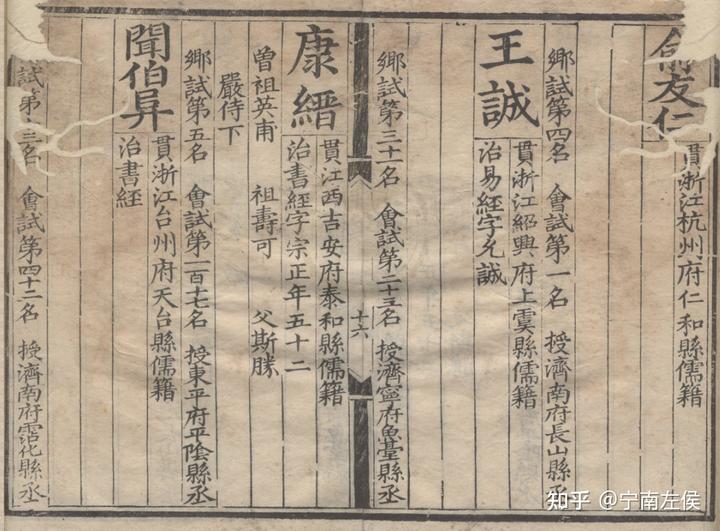 俞友仁 貫浙江杭州府仁和縣儒籍
鄉試第四名 會試第一名 授濟南府長山縣丞
王誠 貫浙江紹興府上虞縣儒籍
治易經字允誠
鄉試第三十一名 會試第二十三名 授濟寧府魚臺縣丞
十六
康縉 貫江西吉安府泰和縣儒籍
治書經字宗正年五十二
曾祖英甫 祖壽可 父斯勝
嚴侍下
鄉試第五名 會試第一百十七名 授東平府平陰縣丞
聞伯昇 貫浙江台州府天台縣儒籍
治書經
試第十三名 會試第四十二名 授濟南府霑化縣丞
知乎 @宁南左侯